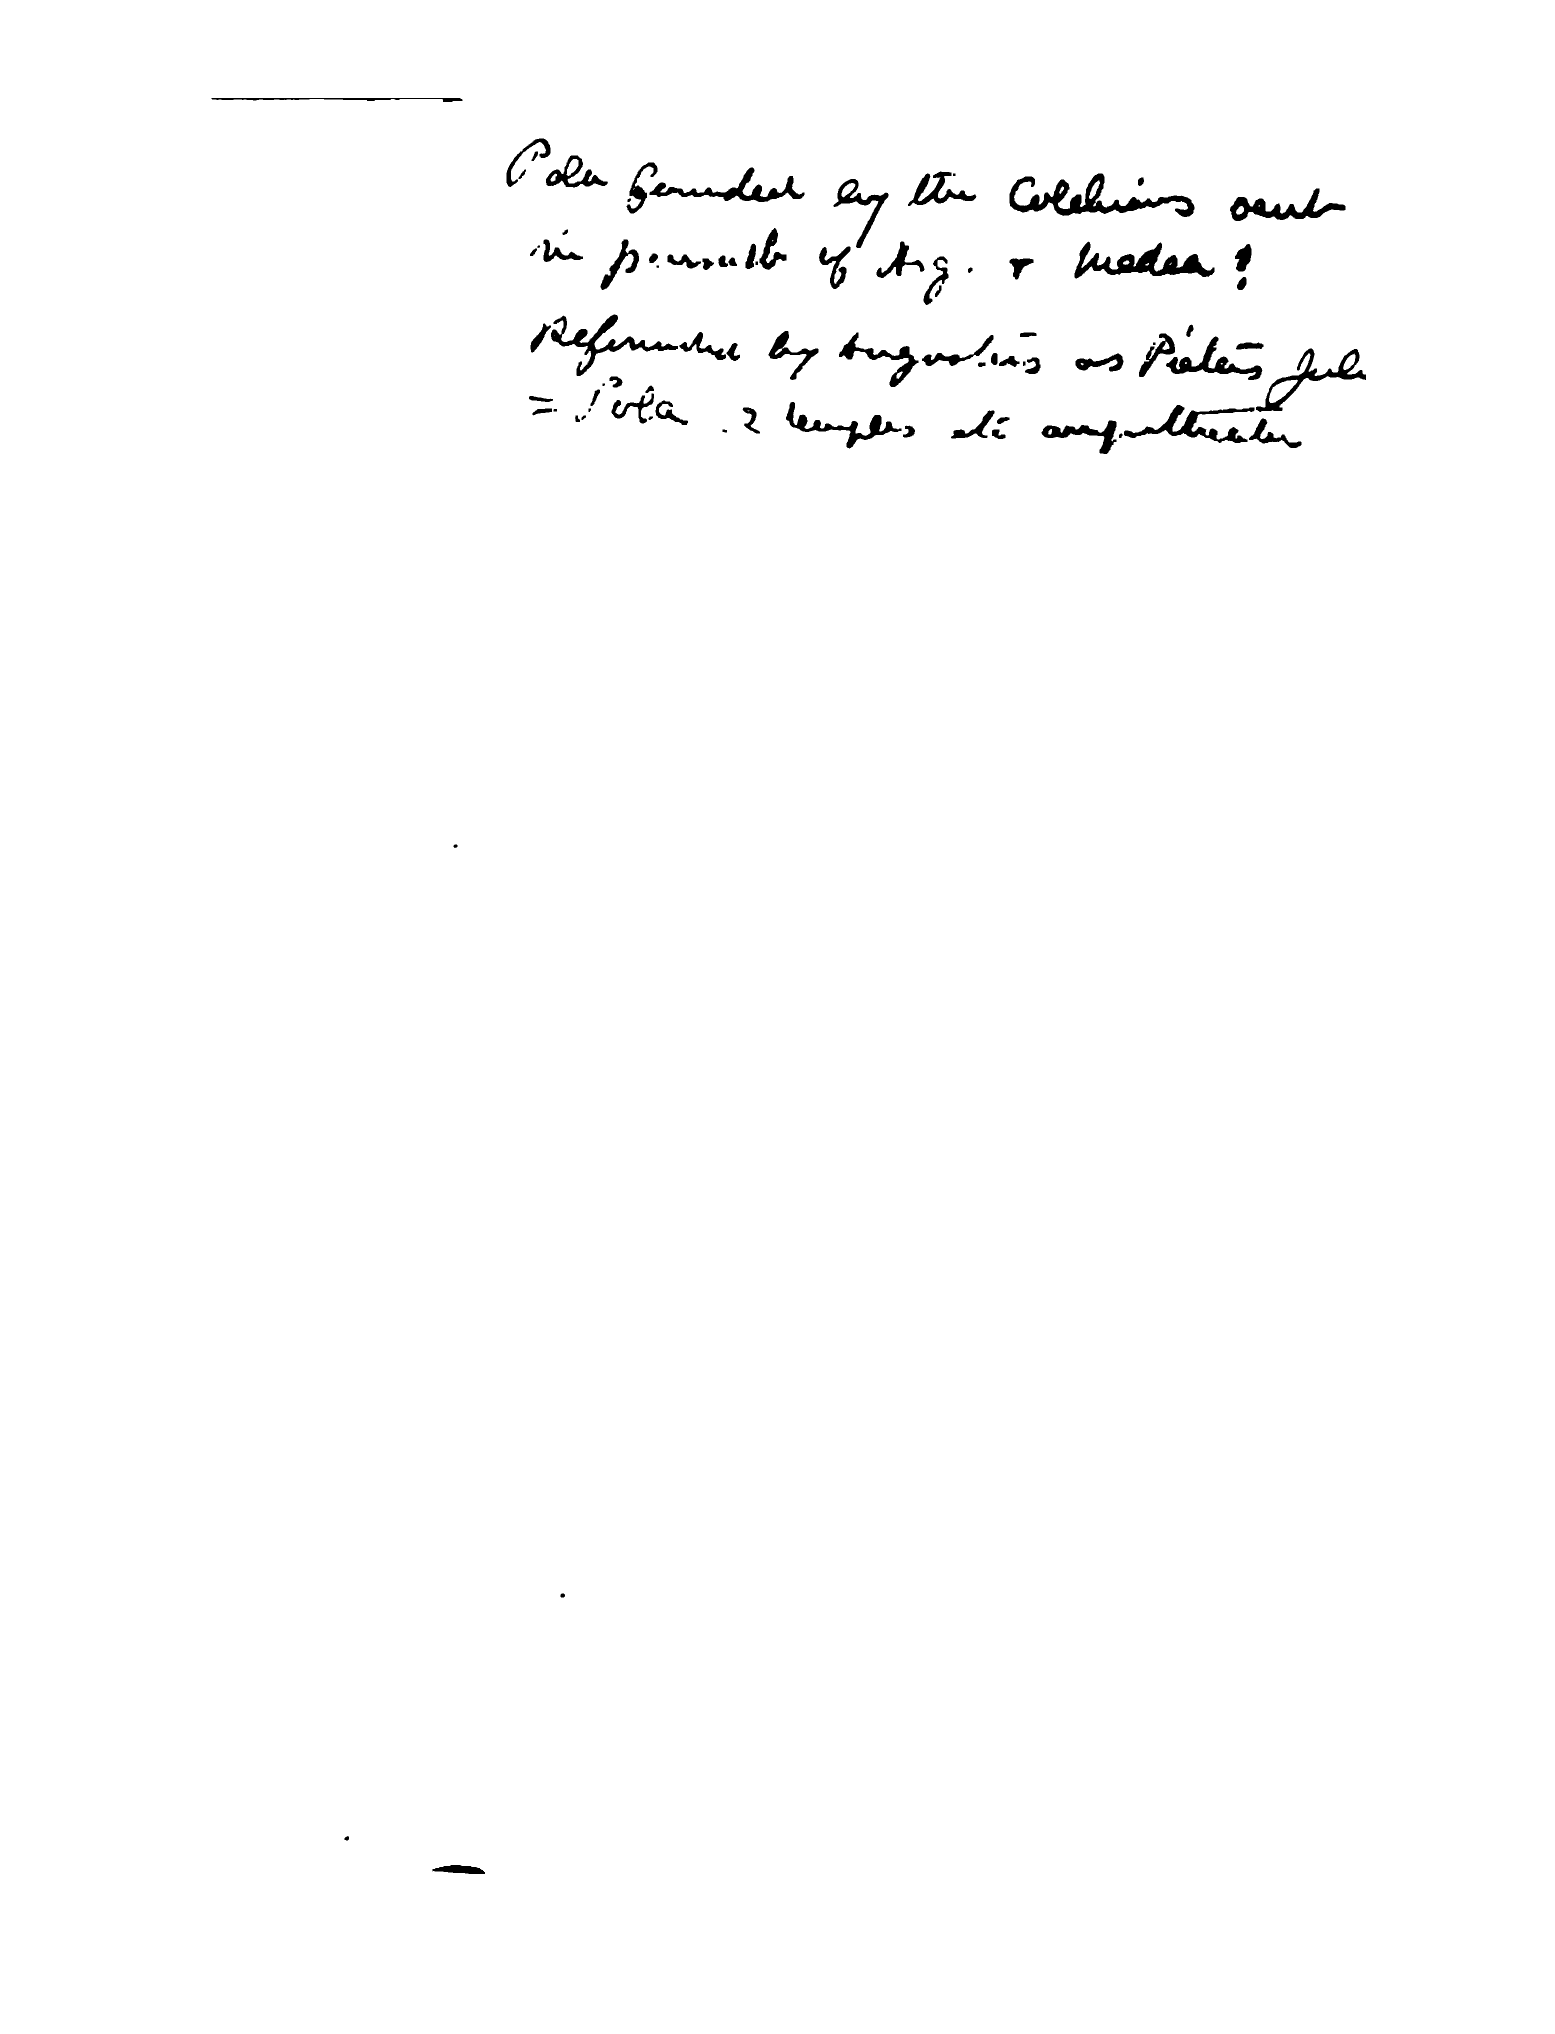 Pola founded by the Colchians sent
in pursuit of Arg. & Medea!
Refounded by Augustus as Pietas Jul
= Pola . 2 temples etc amphitheater